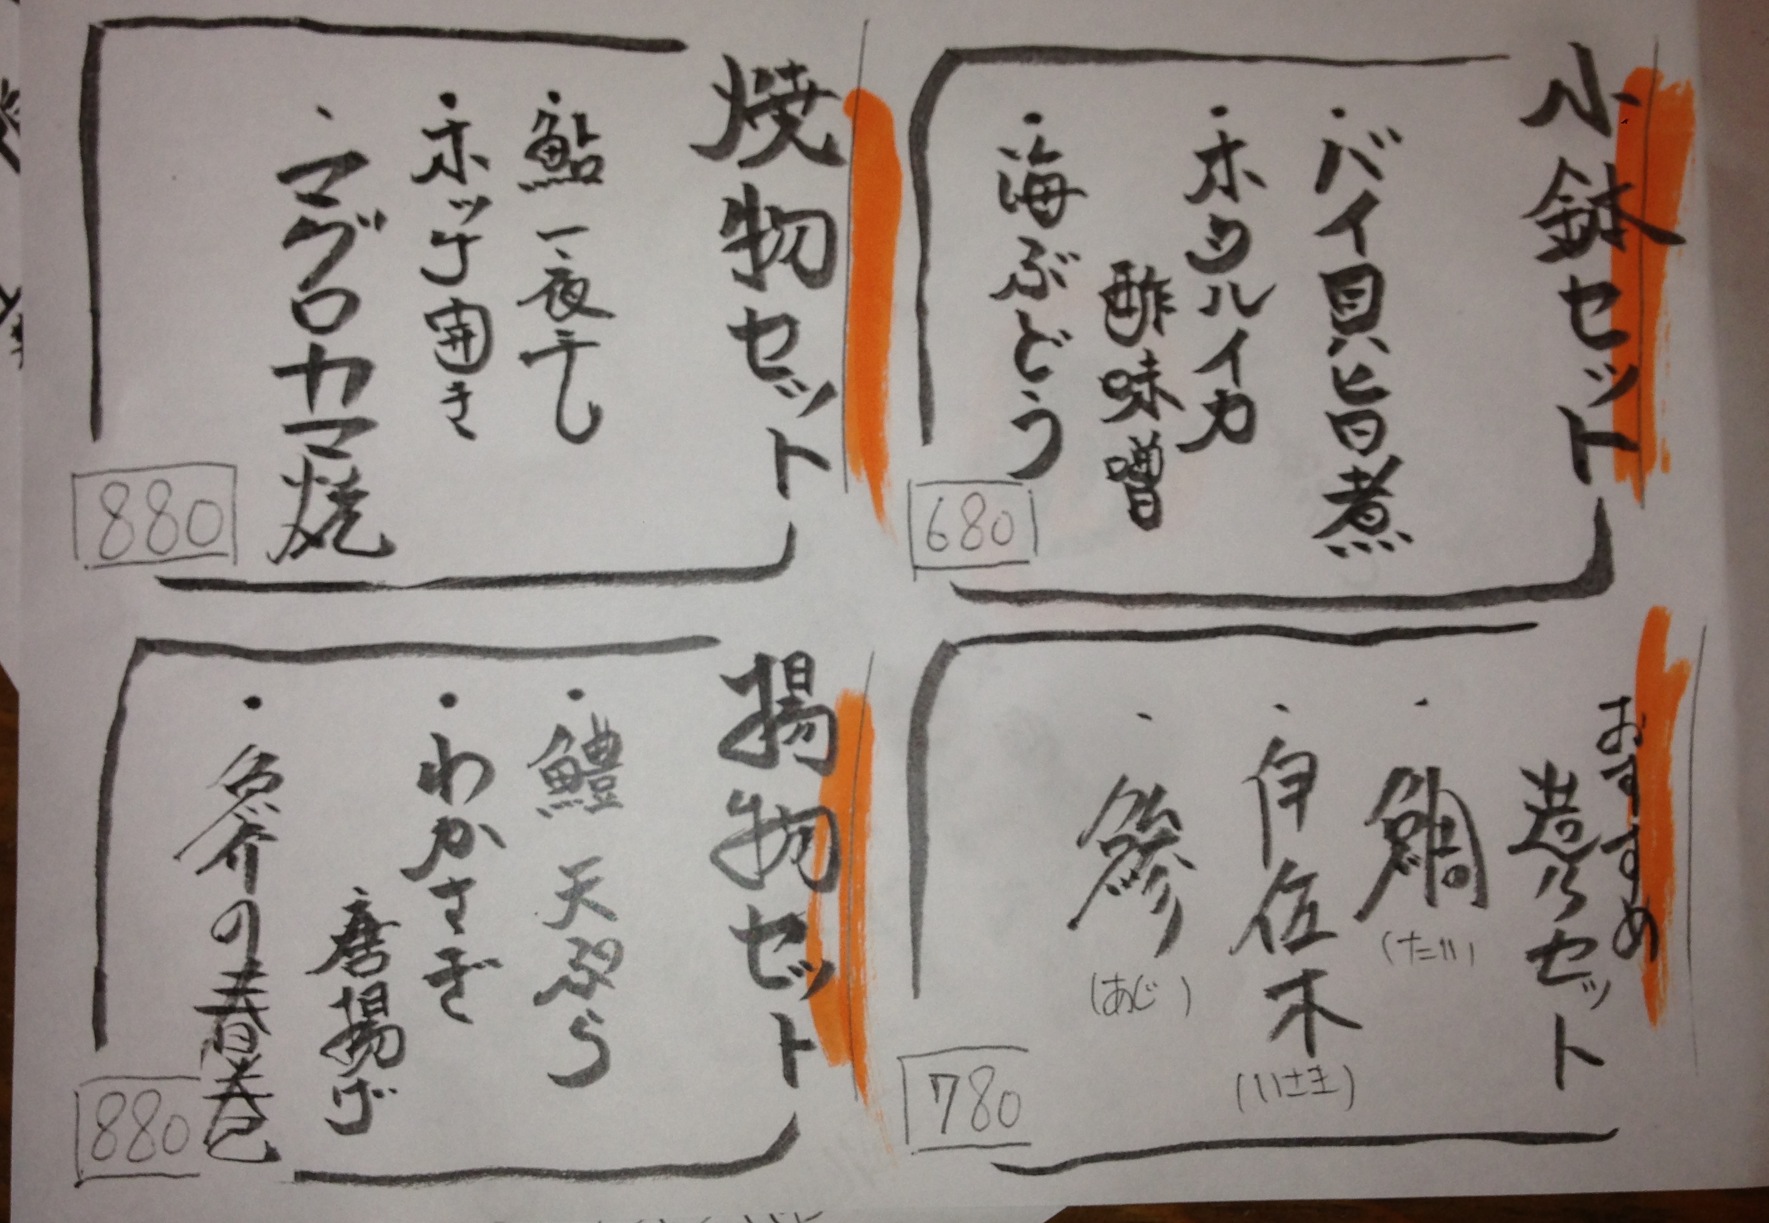 小鉢セット
・バイ貝旨煮
・ホタルイカ
酢味噌
・海ぶどう
680
焼物セット
・鮎一夜干し
・ホッケ開き
・マグロカマ焼
880
おすすめ
造りセット
・鯛
(たい)
・伊佐木
(いさき)
・鯵
(あじ)
780
揚物セット
・鱧 天ぷら
・わかさぎ
唐揚げ
・魚介の春巻
880